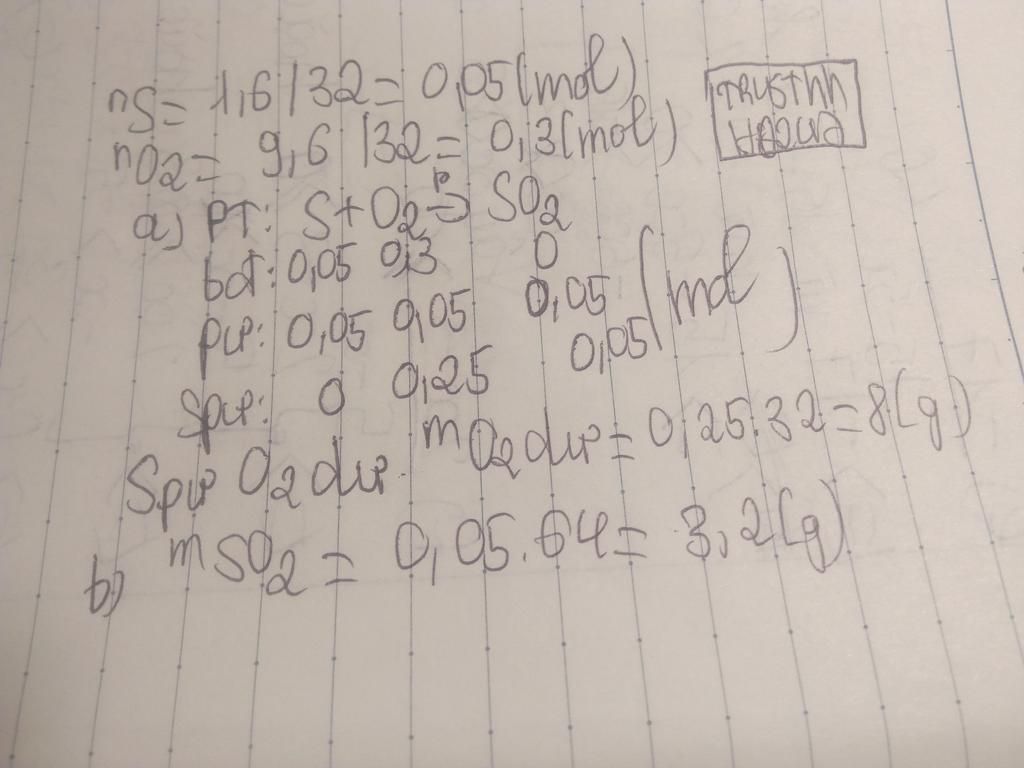 nS = 1,6/32 = 0,05(mol)
nO2 = 9,6/32 = 0,3(mol)
a) PT: S + O2 → SO2
bđ: 0,05 0,3 0
pư: 0,05 0,05 0,05 (mol)
spư: 0 0,25 0,05
Spư O2 dư. mO2 dư = 0,25.32 = 8(g)
b) mSO2 = 0,05.64 = 3,2(g)